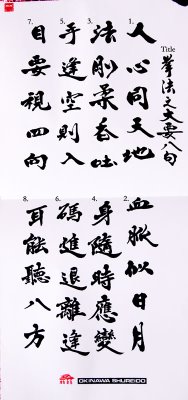 Title
拳法之大要八句
1.
人心同天地
2.
血脈似日月
3.
法剛柔吞吐
4.
身隨時應變
5.
手逢空則入
6.
碼進退離逢
7.
目要視四向
8.
耳能聽八方
OKINAWA SHUREIDO